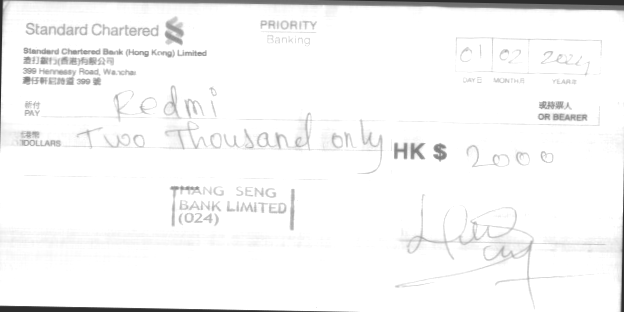 Standard Chartered
PRIORITY
Banking
Standard Chartered Bank (Hong Kong) Limited
渣打銀行(香港)有限公司
399 Hennessy Road, Wanchai
灣仔軒尼詩道 399 號
01 02 2024
DAY日 MONTH月 YEAR年
祈付
PAY Redmi 或持票人
OR BEARER
港幣
DOLLARS Two Thousand only HK $ 2000
HANG SENG
BANK LIMITED
(024)